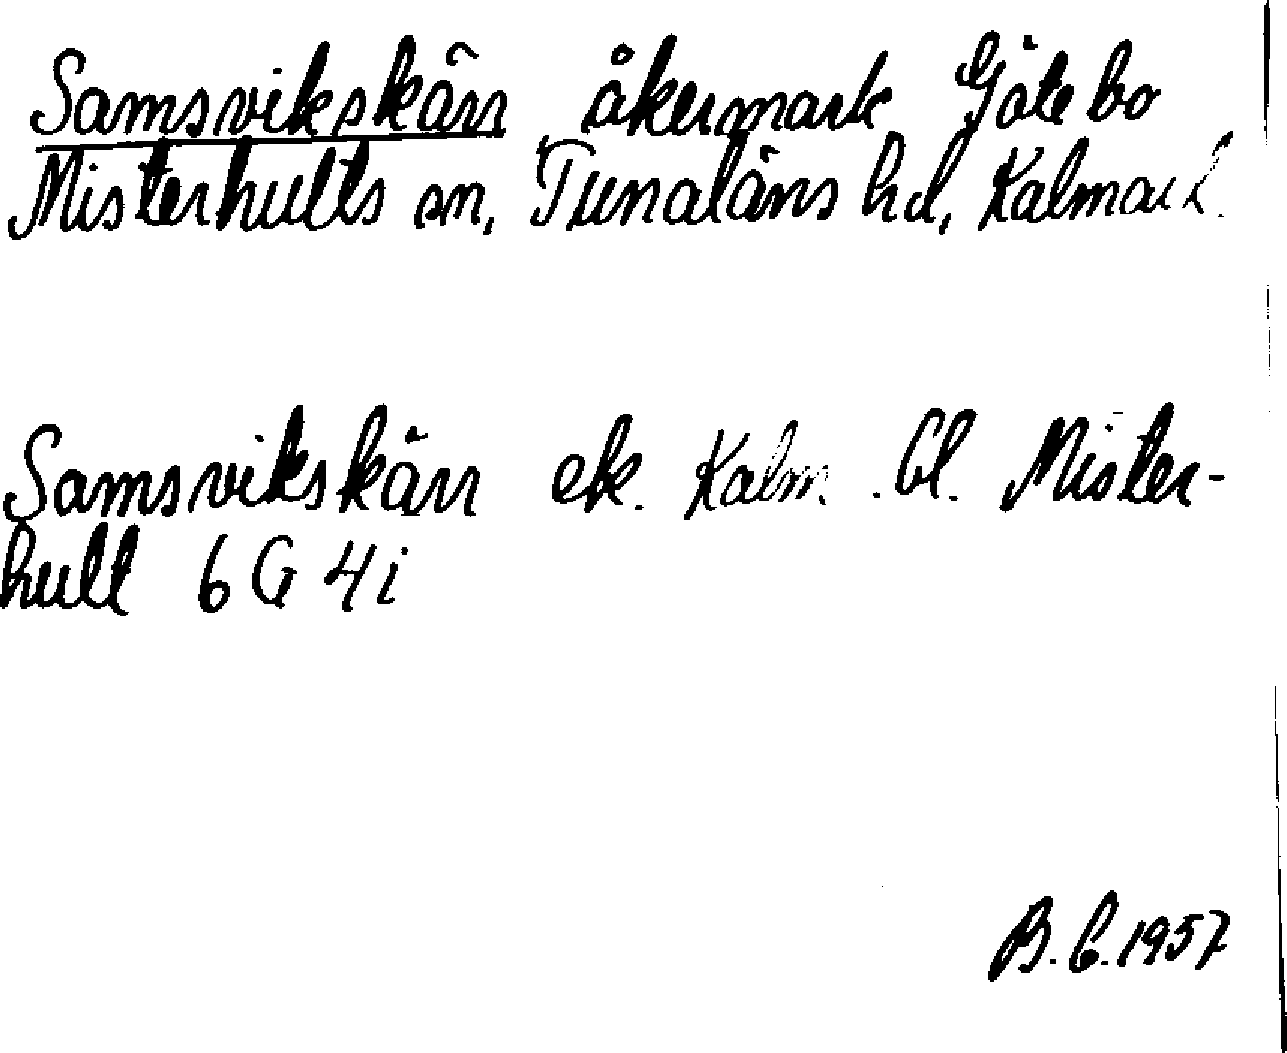 Samsvikskärr åkermark Götebo
Misterhults sn, Tunaläns hd, Kalmar l.
Samsvikskärr ek. Kalm. bl. Mister-
hult 6 G 4i
B. C. 1957